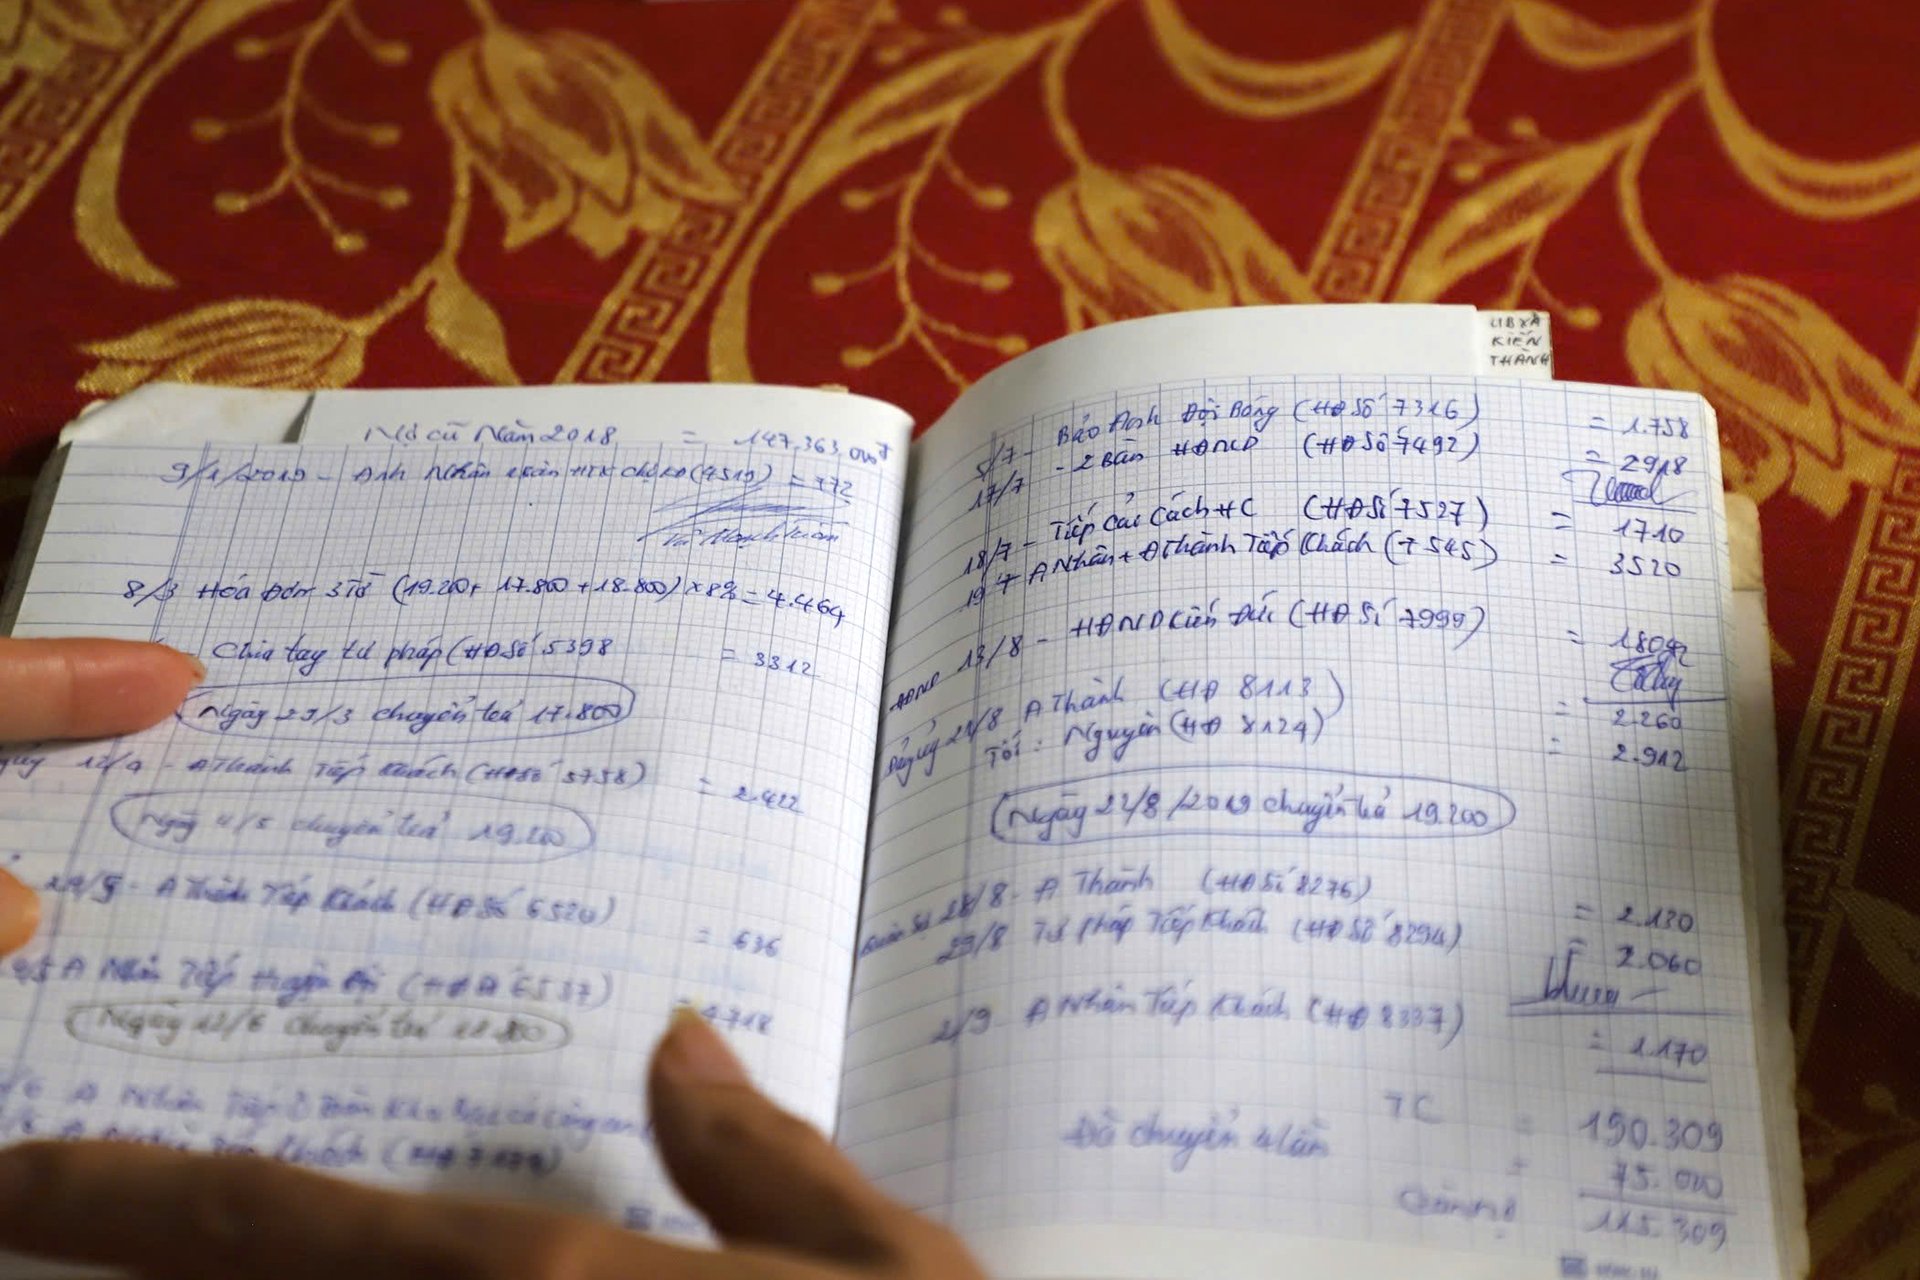 Nợ cũ Năm 2018 = 147.363.000đ
9/1/2019 - Anh Nhân (4519) = 772
8/3 Hóa Đơn 3 Tờ (19.200 + 17.800 + 18.800) x 8% = 4.464
- Chia tay tư pháp (HĐ Số 5398 = 3312
Ngày 29/3 chuyển trả 17.800
12/4 - A Thành Tiếp Khách (HĐ Số 5758) = 2.422
Ngày 4/5 chuyển trả 19.200
A Thành Tiếp Khách (HĐ Số 6520) = 636
A Nhân Tiếp (HĐ 6537)
Ngày 12/6 chuyển trả
A Nhân Tiếp
UB XÃ
KIẾN
THÀNH
5/7 - Bảo Anh Đội Bóng (HĐ Số 7316) = 1.758
17/7 - 2 Bàn HĐND (HĐ Số 7492) = 2918
18/7 - Tiếp Cải Cách HC (HĐ Số 7527) = 1710
19/7 A Nhân + A Thành Tiếp Khách (7545) = 3520
HĐND 13/8 - HĐND Kiến Đức (HĐ Số 7999)
Đảng ủy 21/8 A Thành (HĐ 8113) = 2.260
Tối: Nguyên (HĐ 8124) = 2.912
Ngày 22/8/2019 chuyển trả 19.200
28/8 - A Thành (HĐ Số 8276) = 2.130
29/8 Tư pháp Tiếp Khách (HĐ Số 8294) = 2.060
2/9 A Nhân Tiếp Khách (HĐ 8337) = 1.170
TC = 190.309
Đã chuyển 4 lần = 75.000
Còn nợ 115.309